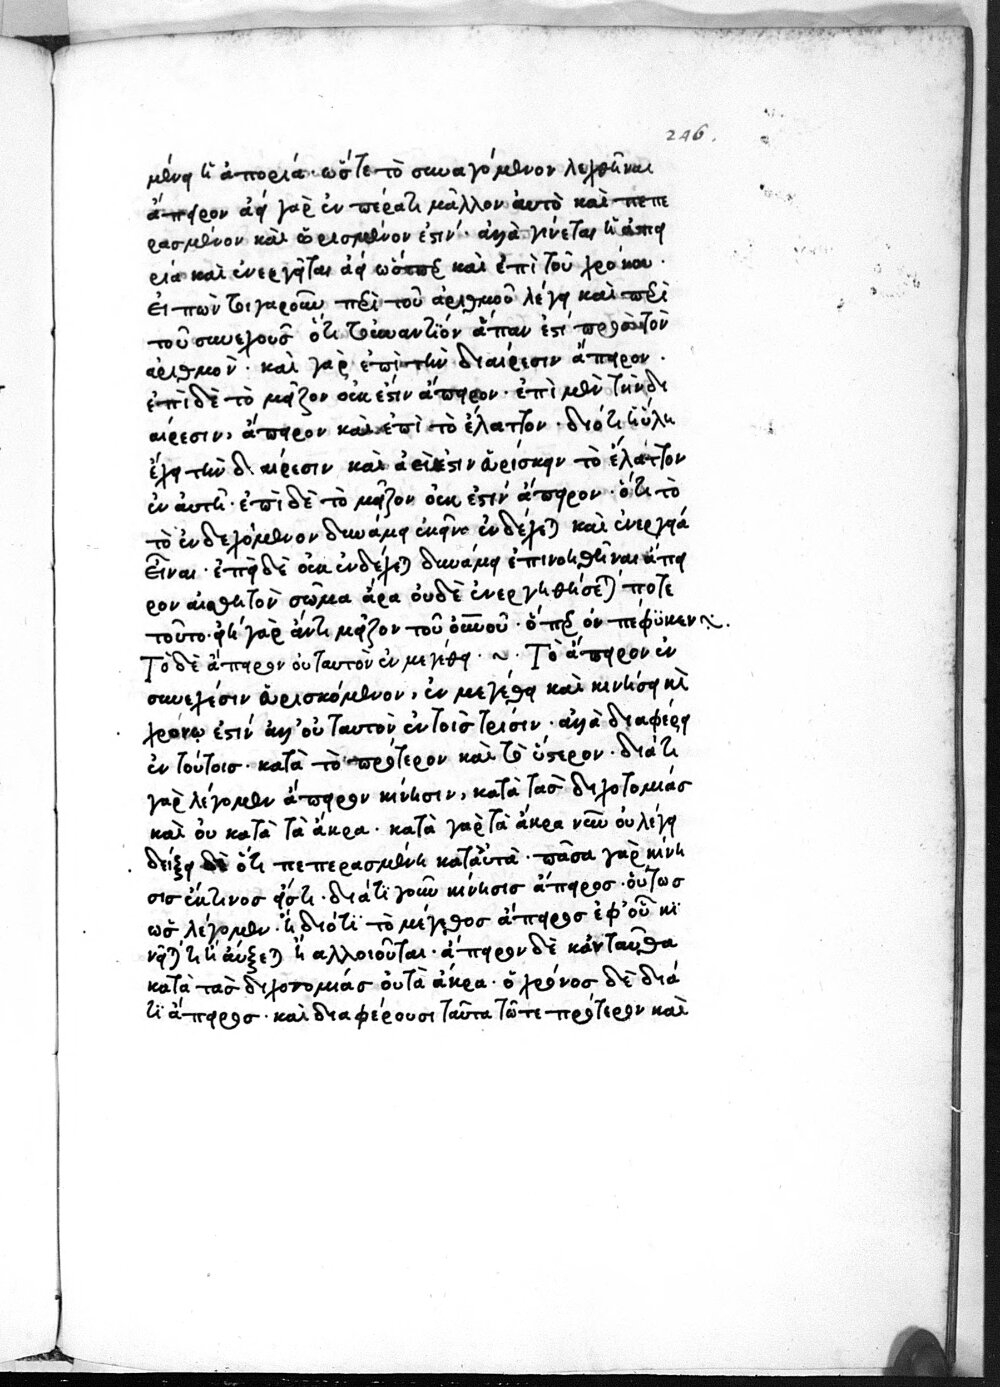 246.
μένη ἡ ἀπορία· ὥστε τὸ συναγόμενον λεχθῆναι
ἄπειρον ἀεὶ γὰρ ἐν πέρατι μᾶλλον αὐτὸ καὶ πεπε
ρασμένον καὶ ὡρισμένον ἐστίν· ἀλλὰ γίνεται ἡ ἀπει
ρία καὶ ἐνεργεῖται ἀεὶ ὥσπερ καὶ ἐπὶ τοῦ χρόνου·
εἰπὼν τιγαροῦν περὶ τοῦ ἀριθμοῦ λέγει καὶ περὶ
τοῦ συνεχοῦς ὅτι τοὐναντίον ἅπαν ἐστί πρὸς τὸν
ἀριθμὸν· καὶ γὰρ ἐπὶ τὴν διαίρεσιν ἄπειρον·
ἐπὶ δὲ τὸ μεῖζον οὐκ ἔστιν ἄπειρον· ἐπὶ μὲν τὴν δι
αίρεσιν, ἄπειρον καὶ ἐπὶ τὸ ἔλαττον· διότι ἡ ὕλη
ἔχει τὴν διαίρεσιν καὶ ἀεὶ ἔστιν εὑρίσκειν τὸ ἔλαττον
ἐν αὐτῇ· ἐπὶ δὲ τὸ μεῖζον οὐκ ἐστίν ἄπειρον· ὅτι τὸ
τὸ ἐνδεχόμενον δυνάμει ἐκεῖνο ἐνδέχεται καὶ ἐνεργείᾳ
εἶναι· ἐπεὶ δὲ οὐκ ἐνδέχεται δυνάμει ἐπινοηθῆναι ἄπει
ρον αἰσθητὸν σῶμα ἄρα οὐδὲ ἐνεργηθήσεταί ποτε
τοῦτο· εἴη γὰρ ἄν τι μεῖζον τοῦ οὐρανοῦ· ὅπερ οὐ πέφυκεν ~.
Τὸ δὲ ἄπειρον οὐ ταυτὸν ἐν μεγέθει· ~ · Τὸ ἄπειρον ἐν
συνεχέσιν εὑρισκόμενον, ἐν μεγέθει καὶ κινήσει καὶ
χρόνῳ ἐστίν ἀλλ' οὐ ταυτὸν ἐν τοῖς τρισίν· ἀλλὰ διαφέρει
ἐν τούτοις· κατὰ τὸ πρότερον καὶ τὸ ὕστερον· διάτι
γὰρ λέγομεν ἄπειρον κίνησιν, κατὰ τὰς διχοτομίας
καὶ οὐ κατὰ τὰ ἄκρα· κατὰ γὰρ τὰ ἄκρα νῦν οὐ λέγει
δείξει δὲ ὅτι πεπερασμένη κατ' αὐτὰ· πᾶσα γὰρ κίνη
σις ἔκτινος εἴς τι· διάτι γοῦν κίνησις ἄπειρος· οὕτως
ὡς λέγομεν· ἢ διότι τὸ μέγεθος ἄπειρος ἐφ' οὗ κι
νεῖταί τι ἢ αὔξεται ἢ ἀλλοιοῦται· ἄπειρον δὲ κἀνταῦθα
κατὰ τὰς διχονομίας οὐ τὰ ἄκρα· ὁ χρόνος δὲ διά
τι ἄπειρος· καὶ διαφέρουσι ταῦτα τῷ τε πρότερον καὶ